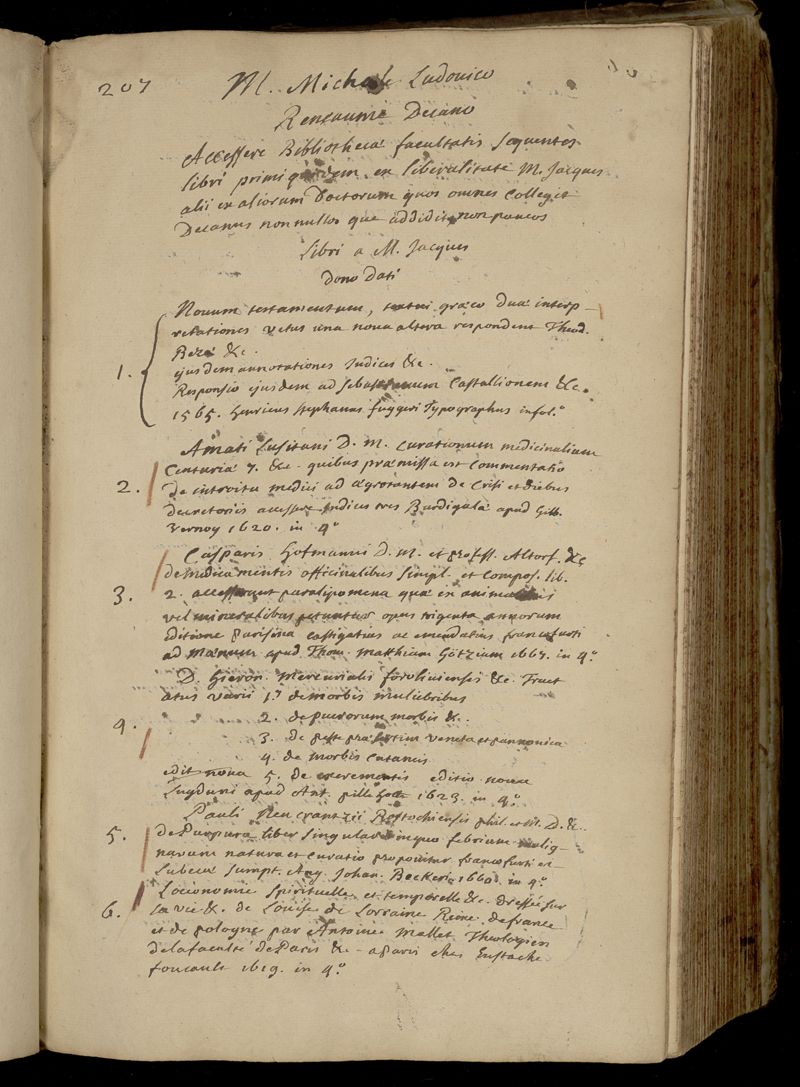 207
M. Michaele Ludovico
Reneaume Decano
Accessere Bibliothecæ facultatis sequentes
libri primi quidem ex liberalitate M. Jacques
alii ex aliorum Doctorum quos omnes collegit
Decanus nonnullos que addidit non paucos
Libri a M. Jacques
dono Dati
Novum testamentum, græco duæ interp-
retationes vetus una nova altera respondent Theod.
Bezæ &c.
1. ejusdem annotationes Indices &c.
Responsio ejusdem ad sebastianum Castallionem &c.
1565. henricus stephanus fuggeri typographus in fol.°
Amati Lusitani D. M. curationum medicinalium
Centuriæ 7. &c. quibus præmissa est commentatio
2. de introitu medici ad ægrotantem de Crisi et diebus
decretoriis accessere indices tres Burdigalæ apud Gilb.
Vernoy 1620. in 4°
Casparis Hofmanni D. M. et profess. Altorf. &c
de medicamentis officinalibus simpl. et compos. lib.
3. 2. accesserunt paralipomena quæ ex animalibus
vel mineralibus petuntur opus triginta annorum
Editione parisina castigatius ac emendatius francofurti
ad Mœnum apud Thom. Matthiam Götzium 1667. in 4°.
D. Hieron. Mercurialis foroliviensis &c. Tract
atus varii 1.° de morbis muliebribus
4. 2. de puerorum morbis &c.
3. de peste præsertim Veneta et pannonica
4. de morbis cutaneis
edit nova 5. de excrementis editio nova
Lugduni apud Ant. pillehotte 1623. in 4°.
Pauli Neucrantzii Rostochiensis phil. et M. D. &c.
5. de Purpura liber singularis in quo febrium malig-
narum natura et curatio proponitur francofurti et
Lubecæ sumpt. Aug. Johan. Beckeri 1660. in 4°.
6. Lœconomie spirituelle et temporelle &c. dressée sur
la vie &c. de Louise de Lorraine Reine de france
et de pologne par Antoine Mallet Theologien
de la faculté de Paris &c - a paris chez Eustache
foucault 1619. in 4°